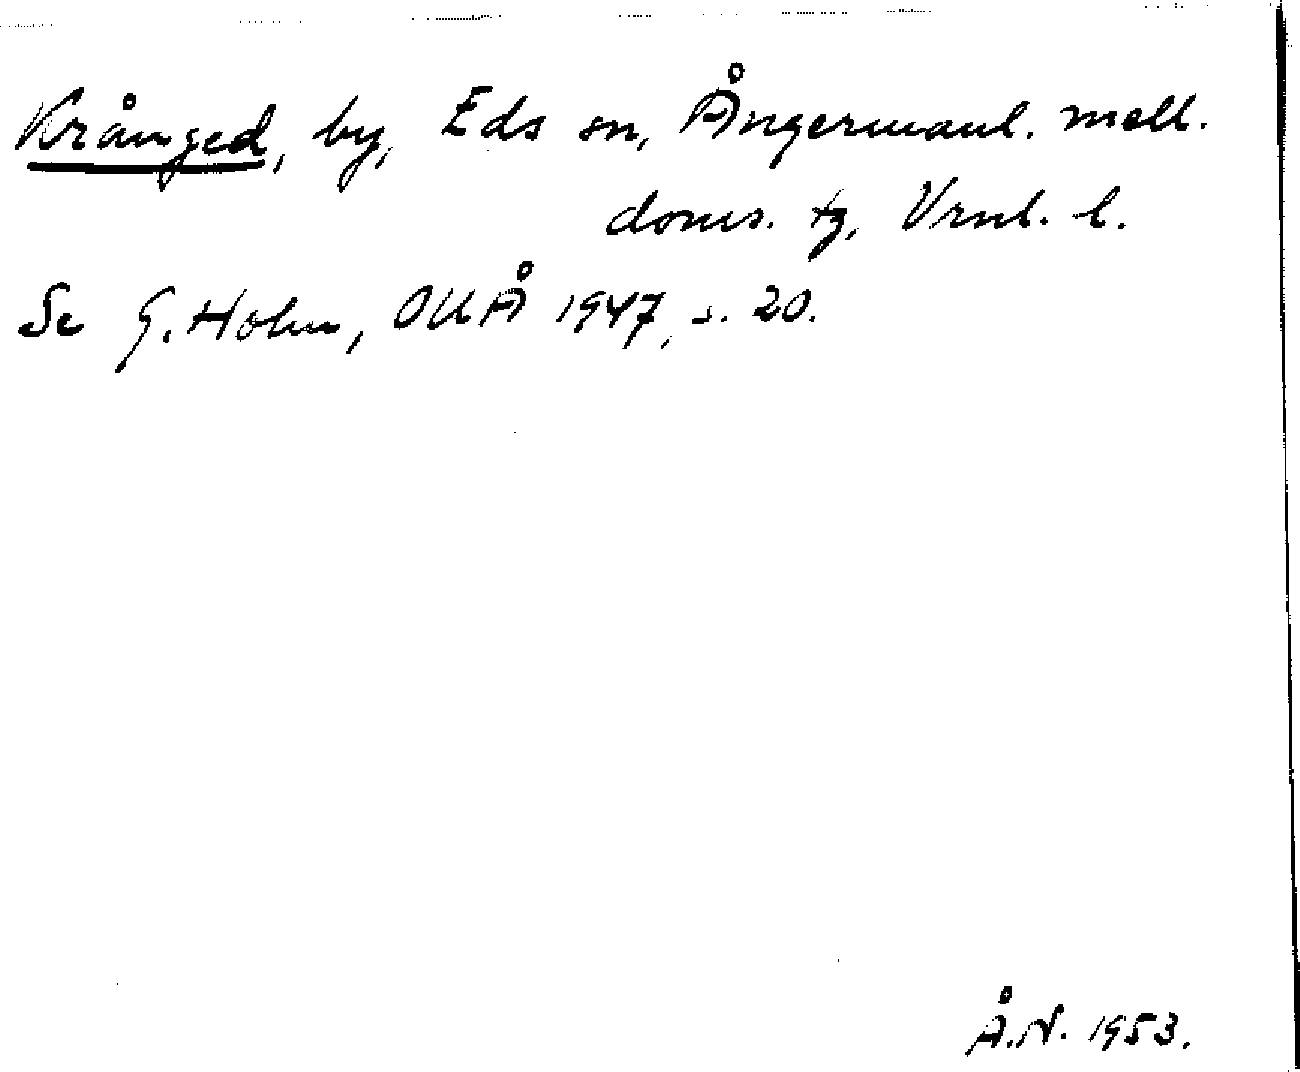 Krånged, by, Eds sn, Ångermanl. mell.
doms. tg, Vrnl. l.
Se G. Holm, OUÅ 1947, s. 20.
Å.N. 1953.